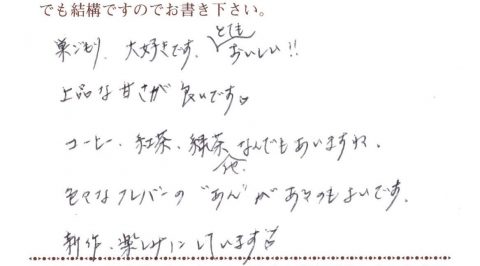 でも結構ですのでお書き下さい。
巣ごもり、大好きです。とてもおいしい!!
上品な甘さが良いです。
コーヒー、紅茶、緑茶他なんでもあいますね。
色々なフレバーの“あん”があるのもよいです。
新作、楽しみにしています